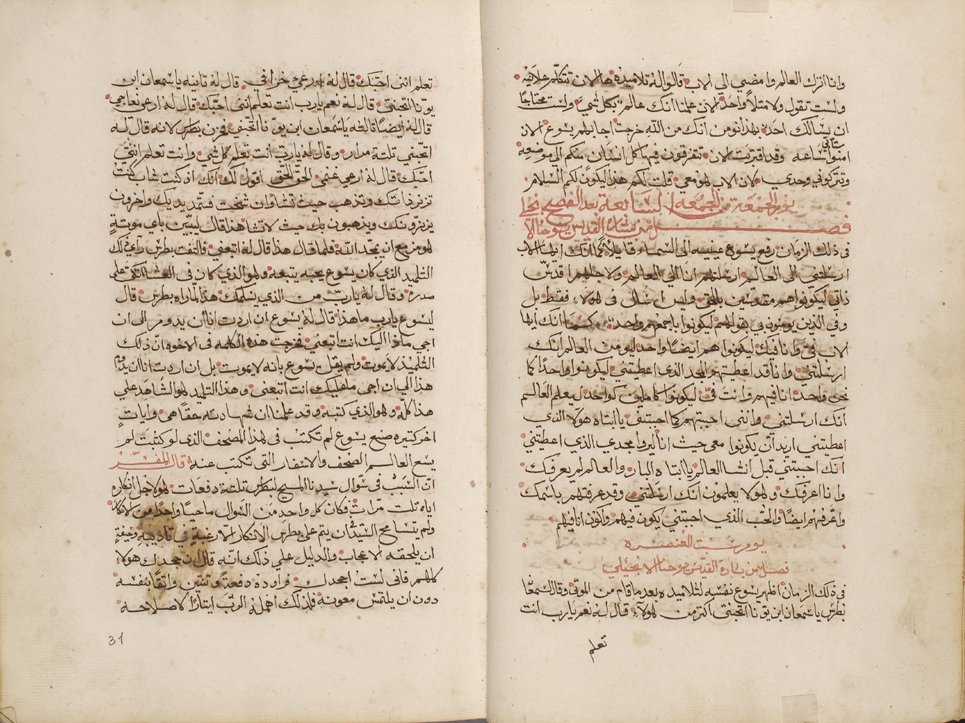 وانا اترك العالم وامضي الى الاب قالوا له تلاميذه ها الان تتكلم علانيه
ولست تقول ولا مثلاً واحدًا الان علمنا انك عالم بكل شي ولست محتاجًا
ان يسالك احد بهذا نومن انك من الله خرجت اجابهم يسوع الان
امنوا ستاتي ساعه وقد اقتربت الان تتفرقون فيها كل انسان منكم الى موضعه
وتتركوني وحدي لان الاب هو معي قلت لكم هذا ليكون لكم السلام
يوم الجمعة من الجمعه السابعه بعد الفصح
فصل من بشارة القديس يوحنا
في ذلك الزمان رفع يسوع عينيه الى السماء قايلاً كما انك ايها الاب
ارسلتني الى العالم ارسلتهم انا الى العالم ولاجلهم اقدس
ذاتي ليكونوا هم مقدسين بالحق وليس اسال في هولاء فقط بل
وفي الذين يومنون بي بقولهم ليكونوا باجمعهم واحد كما انك ايها
الاب في وانا فيك ليكونوا هم ايضًا واحد ليومن العالم انك
ارسلتني وانا قد اعطيتهم المجد الذي اعطيتني ليكونوا واحدًا كما
نحن واحد انا فيهم وانت في ليكونوا كاملين كواحد ليعلم العالم
انك ارسلتني وانني احببتهم كما احببتني يا ابتاه هولاء الذي
اعطيتني اريد ان يكونوا معي حيث انا ليروا مجدي الذي اعطيتني
انك احببتني قبل انشا العالم يا ابتاه البار والعالم لم يعرفك
وانا اعرفك وهولا يعلمون انك ارسلتني وقد عرفتهم باسمك
واعرفهم ايضًا والحب الذي احببتني يكون فيهم واكون انا فيهم
يوم سبت العنصره
فصل من بشارة القديس يوحنا الانجيلي
في ذلك الزمان اظهر يسوع نفسه لتلاميذه بعد ما قام من الموتى وقال لسمعان
بطرس يا سمعان ابن يونا اتحبني اكثر من هولاء قال له نعم يا رب انت
تعلم
تعلم انني احبك قال له ارعى خرافي قال له ثانيه يا سمعان ابن
يونا اتحبني قال له نعم يا رب انت تعلم انني احبك قال له ارعى نعاجي
قال له ايضًا ثالثه يا سمعان ابن يونا اتحبني فحزن بطرس لانه قال له
اتحبني ثلثة مرار وقال له يا رب انت تعلم كل شي وانت تعلم انني
احبك قال له ارعى غنمي الحق الحق اقول لك انك اذ كنت شاب كنت
تزنر ذاتك وتذهب حيث تشا وان شخت فتمد يديك واخرون
يزنرونك ويذهبون بك حيث لا تشا هذا قال ليبين باي موتةٍ
هو مزمع ان يمجد الله فلما قال هذا قال له اتبعني فالتفت بطرس راى ذلك
التلميذ الذي كان يسوع يحبه يتبعه وهو الذي كان في العشا اتكى على
صدره وقال له يا رب من الذي يسلمك هذا لما راه بطرس قال
ليسوع يا رب ما هذا قال له يسوع ان اردت انا ان يدوم الى ان
اجي ماذا اليك انت اتبعني فخرجت هذه الكلمه في الاخوه ان ذلك
التلميذ لا يموت ولم يقل يسوع بانه لا يموت بل ان اردت انا ان يدوم
هذا الى ان اجي ما عليك انت اتبعني وهذا التلميذ هو الشاهد على
هذا كله وهو الذي كتبه وقد علمنا ان شهادته حقًا هي وايات
اخر كثيره صنع يسوع لم تكتب في هذا المصحف الذي لو كتبت لم
يسع العالم الصحف والاسفار التي تكتب عنه قال المفسر
ان السبب في سوال سيدنا المسيح لبطرس ثلثة دفعات هو لاجل انكاره
اياه ثلث مرات فكان كل واحد من السوال ماحيًا واحدًا من الانكار
ولم يتسامح السيد ان يتم على بطرس الانكار الا رغبةً في تاديبه وخيفةً
ان يلحقه الاعجاب والدليل على ذلك انه قال ان جحدك هولاء
كلهم فاني لست اجحدك فراوده دفعةً وثنتين واثقًا بنفسه
دون ان يلتمس معونه فلذلك اهمله الرب ابتدآً لاصلاحه
31